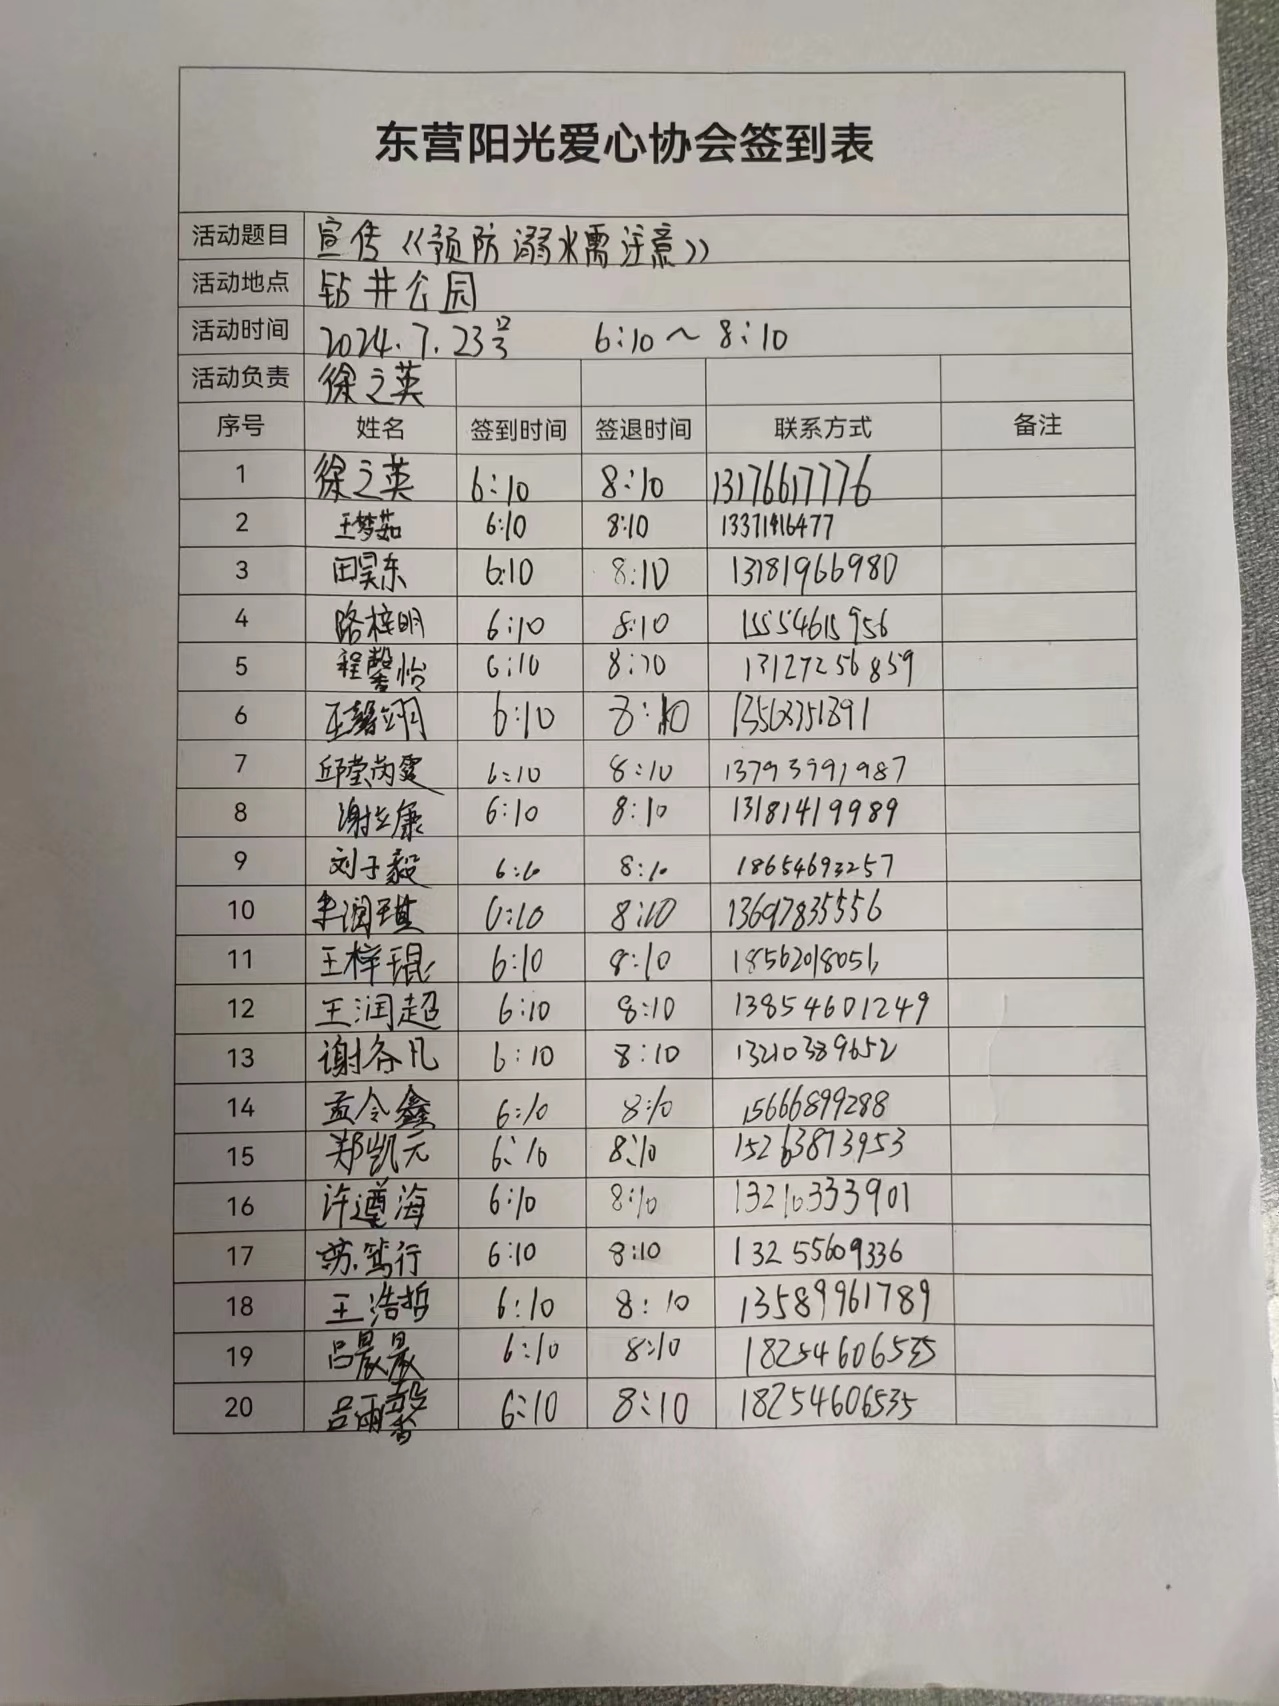 东营阳光爱心协会签到表
活动题目 宣传《预防溺水需注意》
活动地点 钻井公园
活动时间 2024.7.23号 6:10～8:10
活动负责 徐之英
序号 姓名 签到时间 签退时间 联系方式 备注
1 徐之英 6:10 8:10 13176617776
2 王梦茹 6:10 8:10 13371416477
3 田昊东 6:10 8:10 13781966980
4 路梓明 6:10 8:10 15554615956
5 程馨怡 6:10 8:10 13127256859
6 王馨翊 6:10 8:10
7 邱莹芮雯 6:10 8:10 13793991987
8 谢立康 6:10 8:10 13181419989
9 刘子毅 6:10 8:10 18654693257
10 6:10 8:10
11 王梓琨 6:10 8:10 18562018056
12 王润超 6:10 8:10 13854601249
13 6:10 8:10 13210389652
14 孟令鑫 6:10 8:10 15666899288
15 郑凯元 6:10 8:10 15263873953
16 许遵海 6:10 8:10 13210333901
17 苏笃行 6:10 8:10 13255609336
18 王浩哲 6:10 8:10 13589961789
19 吕晨晟 6:10 8:10 18254606535
20 吕雨馨 6:10 8:10 18254606535